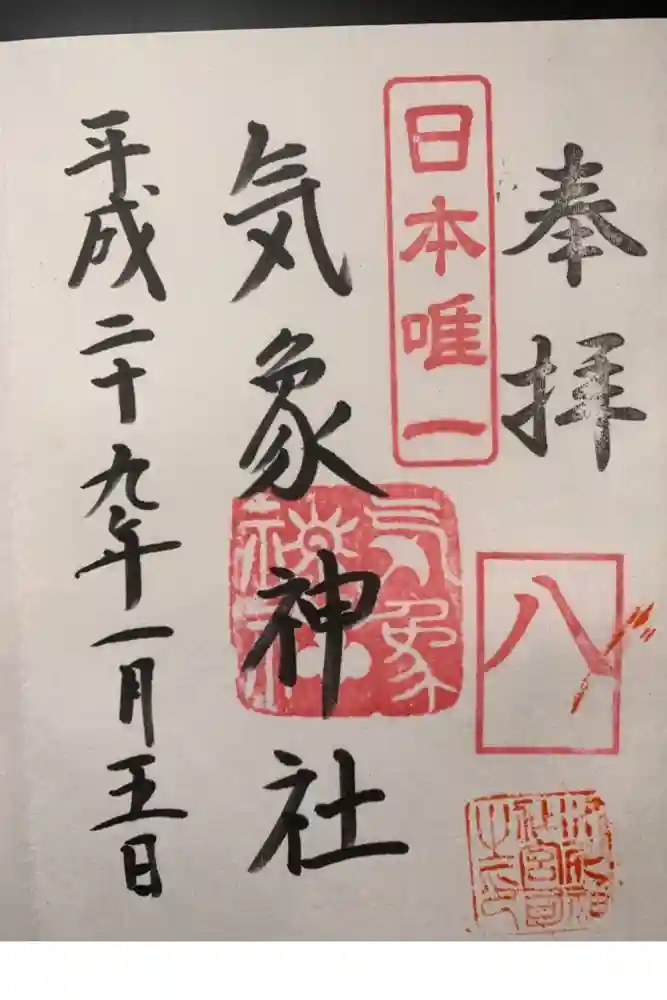 奉拝
八
日本唯一
気象神社
平成二十九年一月五日